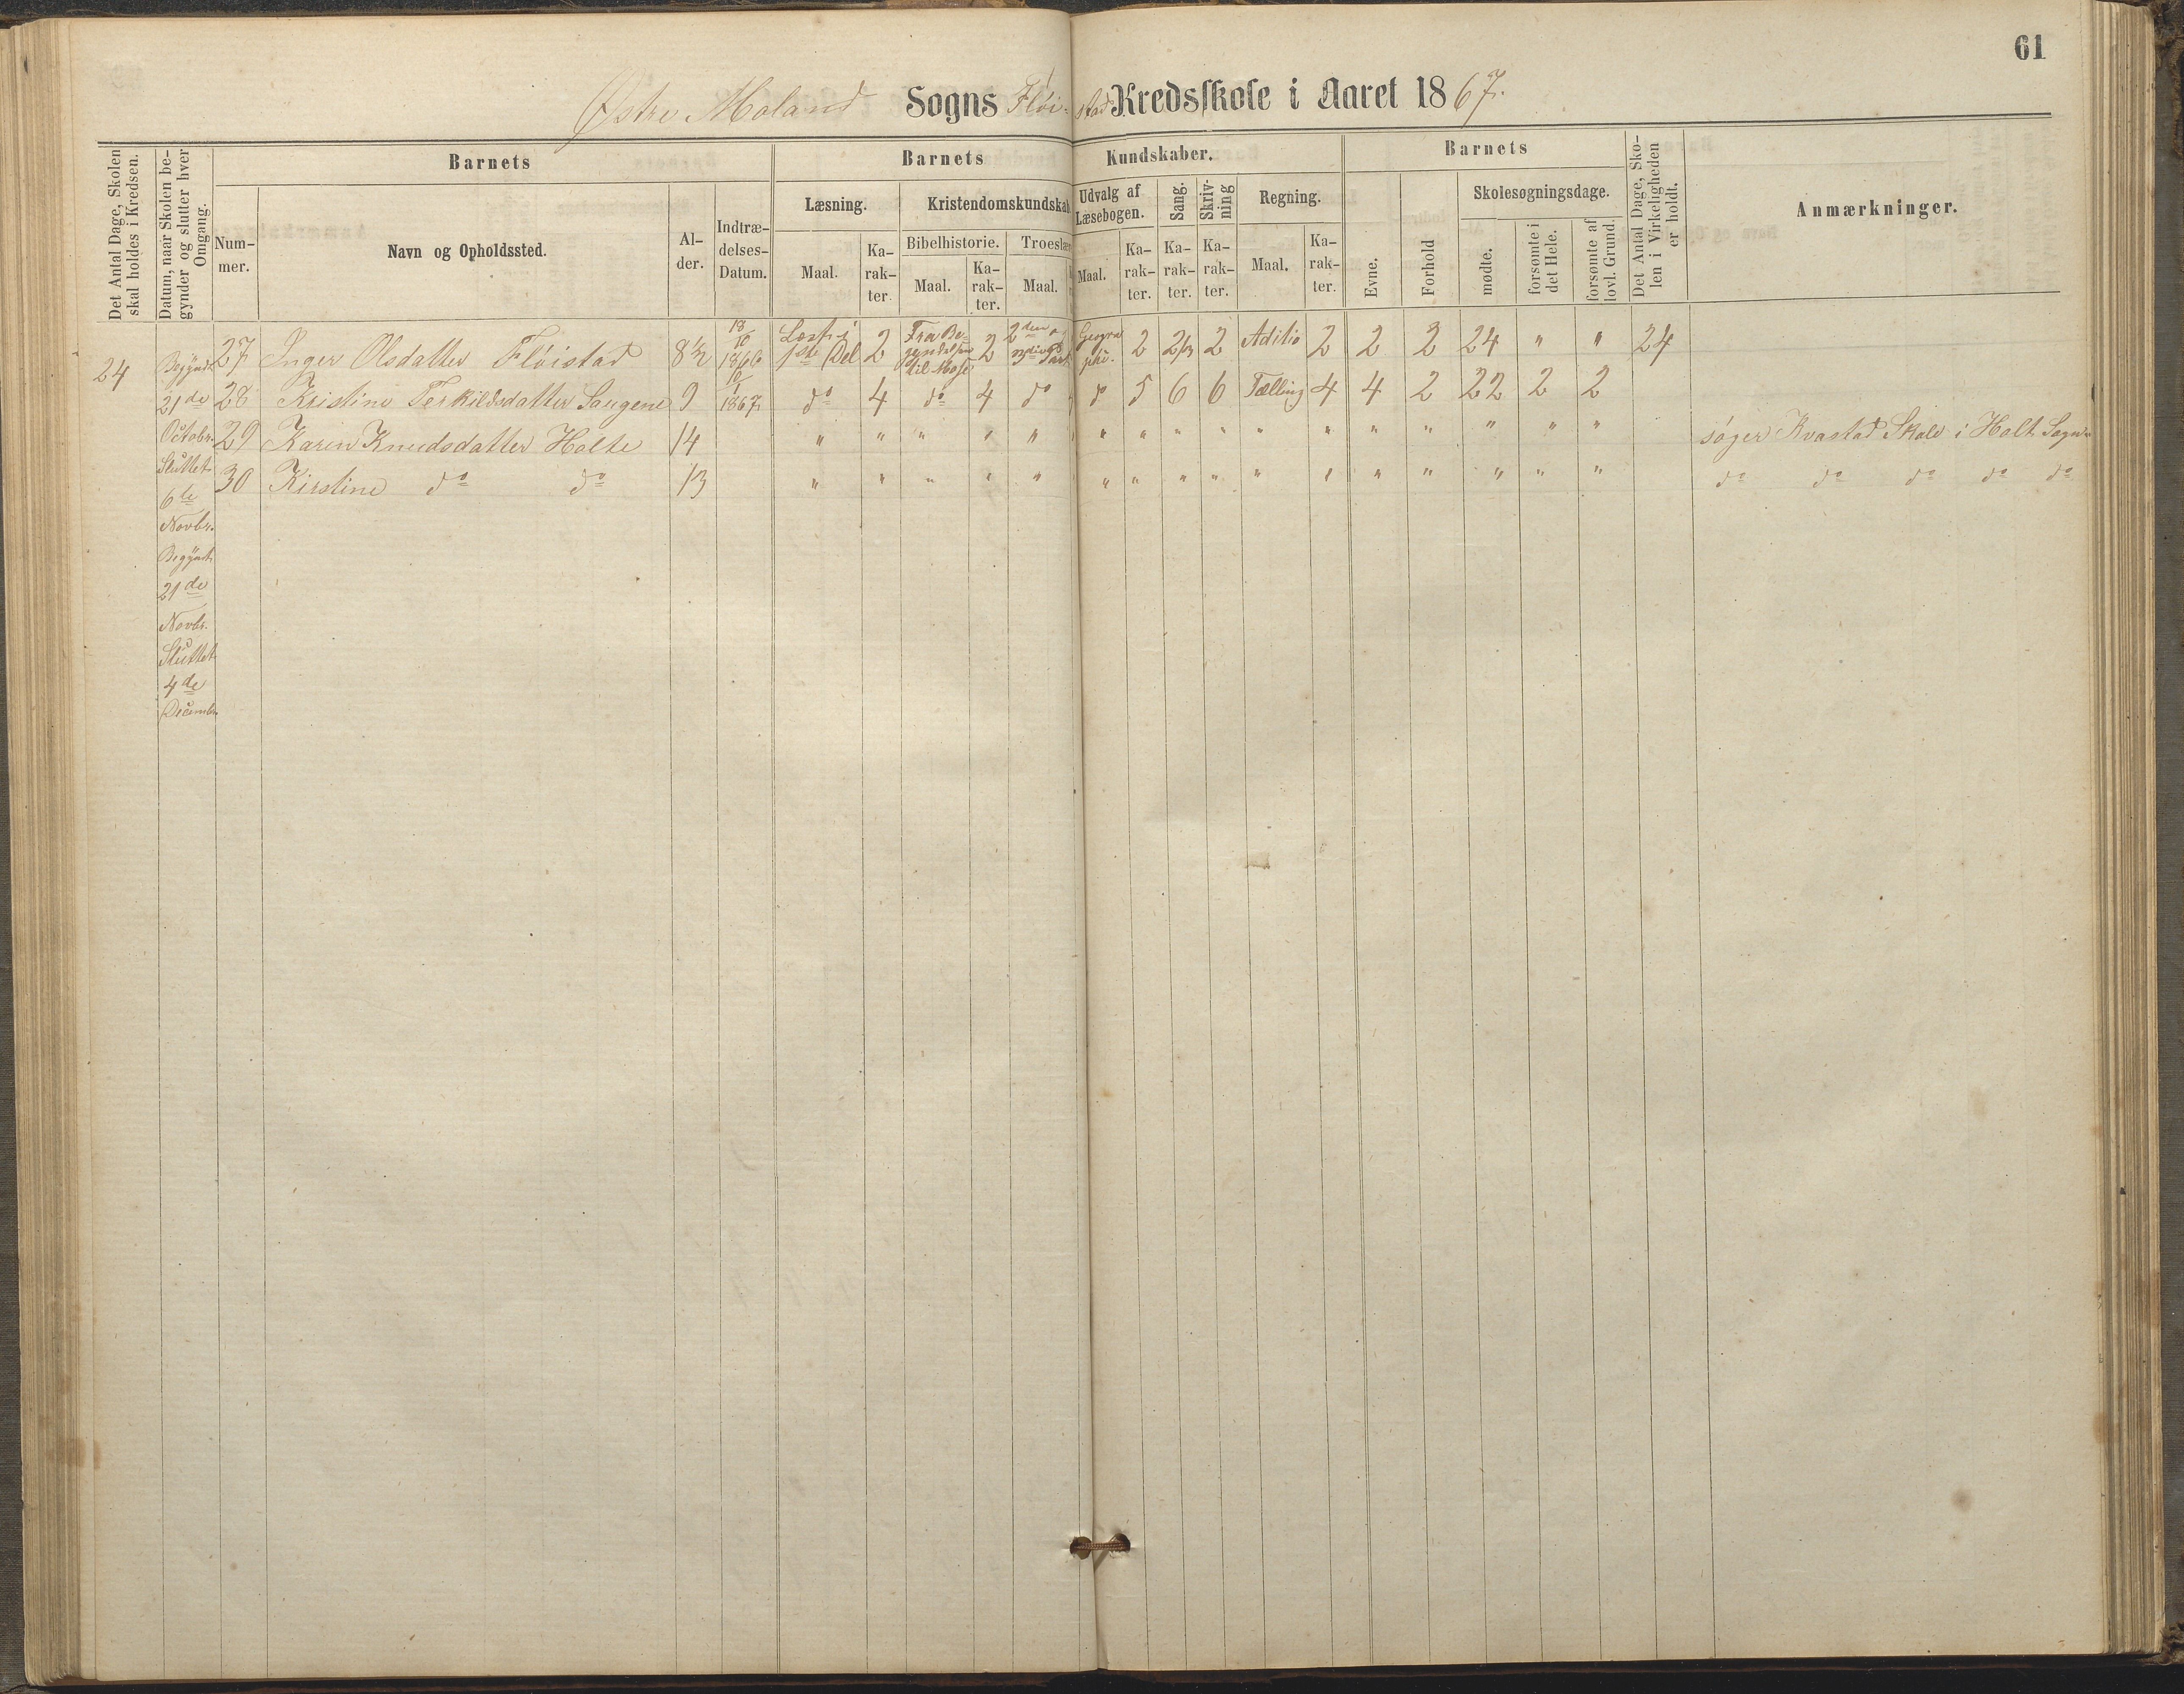 61
Østre Moland Sogns Fløi- stad Kredsskole i Aaret 1867.
Det Antal Dage, Skolen skal holdes i Kredsen.
Datum, naar Skolen be-
gynder og slutter hver
Omgang.
Barnets
Num-
mer.
Navn og Opholdssted.
Al-
der.
Indtræ-
delses-
Datum.
Barnets Kundskaber.
Læsning.
Maal.
Ka-
rak-
ter.
Kristendomskundskab
Bibelhistorie.
Maal.
Ka-
rak-
ter.
Troeslær
Maal.
Udvalg af
Læsebogen.
Maal.
Ka-
rak-
ter.
Sang.
Ka-
rak-
ter.
Skriv-
ning
Ka-
rak-
ter.
Regning.
Maal.
Ka-
rak-
ter.
Barnets
Evne.
Forhold
Skolesøgningsdage.
mødte.
forsømte i
det Hele.
forsømte af
lovl. Grund.
Det Antal Dage, Sko-
len i Virkeligheden
er holdt.
Anmærkninger.
24
Begyndt
21de
Octobr.
Sluttet
6te
Novbr.
Begyndt
21de
Novbr.
Sluttet
4de
Decembr.
27 Inger Olsdatter Fløistad 8½ 18/10 1866 Læst i 1ste Del 2 Fra Be- til Mose 2 2den og Part Geogra phi. 2 2/3 2 Aditio 2 2 2 24 " " 24
28 Kristine Terkildsdatter Saugene 9 1867 do 4 do 4 do do 5 6 6 Tælling 4 4 2 22 2 2
29 Karen Knudsdatter Holte 14 " " " " " " " " " " " " " " " " søger Kvastad Skole i Holt Sogn
30 Kirstine do do 13 " " " " " " " " " " " " " " " " do do do do do